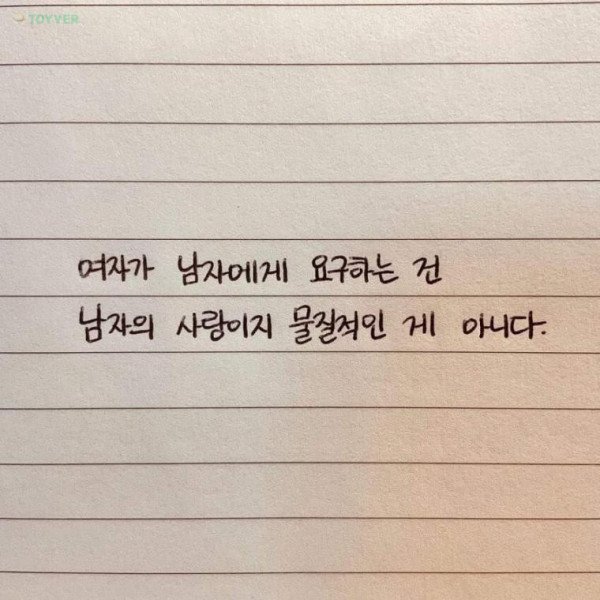 TOYVER
여자가 남자에게 요구하는 건
남자의 사랑이지 물질적인 게 아니다.